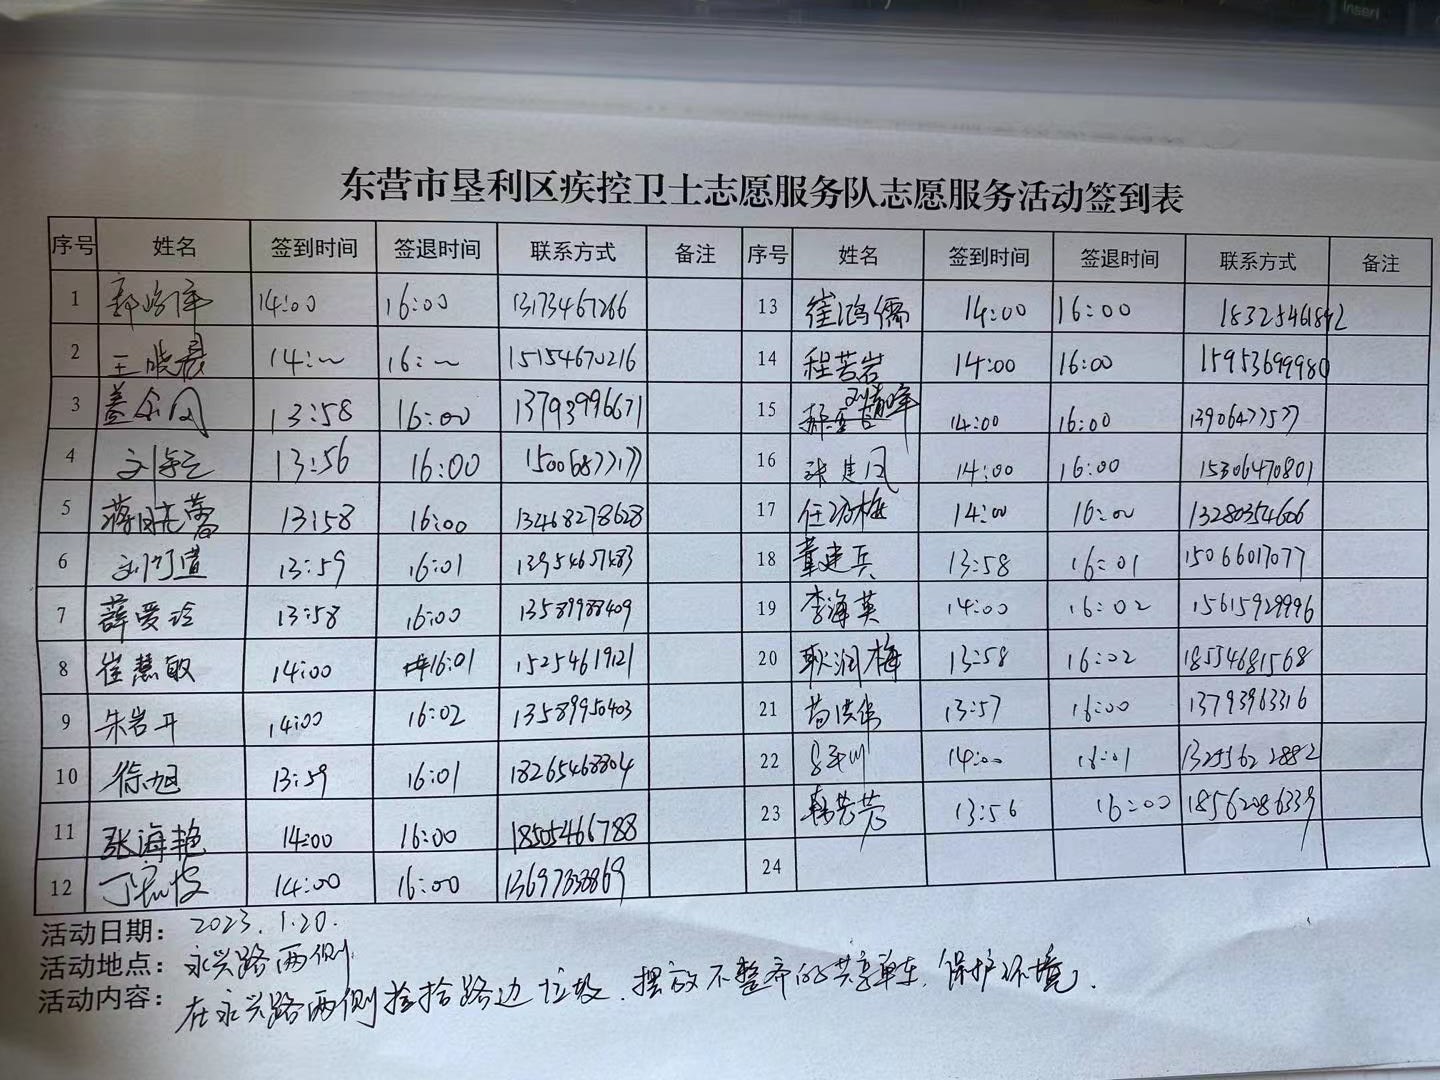 东营市垦利区疾控卫士志愿服务队志愿服务活动签到表
序号 姓名 签到时间 签退时间 联系方式 备注 序号 姓名 签到时间 签退时间 联系方式 备注
1 14:00 16:00 13173467266 13 崔鸿儒 14:00 16:00
2 王晓晨 14:~ 16:~ 15154670216 14 程芳岩 14:00 16:00 15953699980
3 盖金凤 13:58 16:00 13793996671 15 14:00 16:00
4 13:56 16:00 16 张建凤 14:00 16:00 15306470801
5 13:58 16:00 13468278628 17 14:00 16:00 13280354606
6 13:59 16:01 18 董建兵 13:58 16:01 15066017077
7 薛爱玲 13:58 16:00 13589988409 19 李海英 14:00 16:02 15615929996
8 崔慧敏 14:00 16:01 15254619121 20 耿润梅 13:58 16:02 18554681568
9 朱岩开 14:00 16:02 13589950403 21 13:57 16:00 13793963316
10 徐旭 13:59 16:01 18265468804 22 14:00 16:01 13295622882
11 张海艳 14:00 16:00 18505466788 23 韩芳芳 13:56 16:00 18562086339
12 14:00 16:00 24
活动日期： 2023.1.20.
活动地点： 永兴路两侧
活动内容： 在永兴路两侧捡拾路边垃圾，摆放不整齐的共享单车，保护环境。
Insert